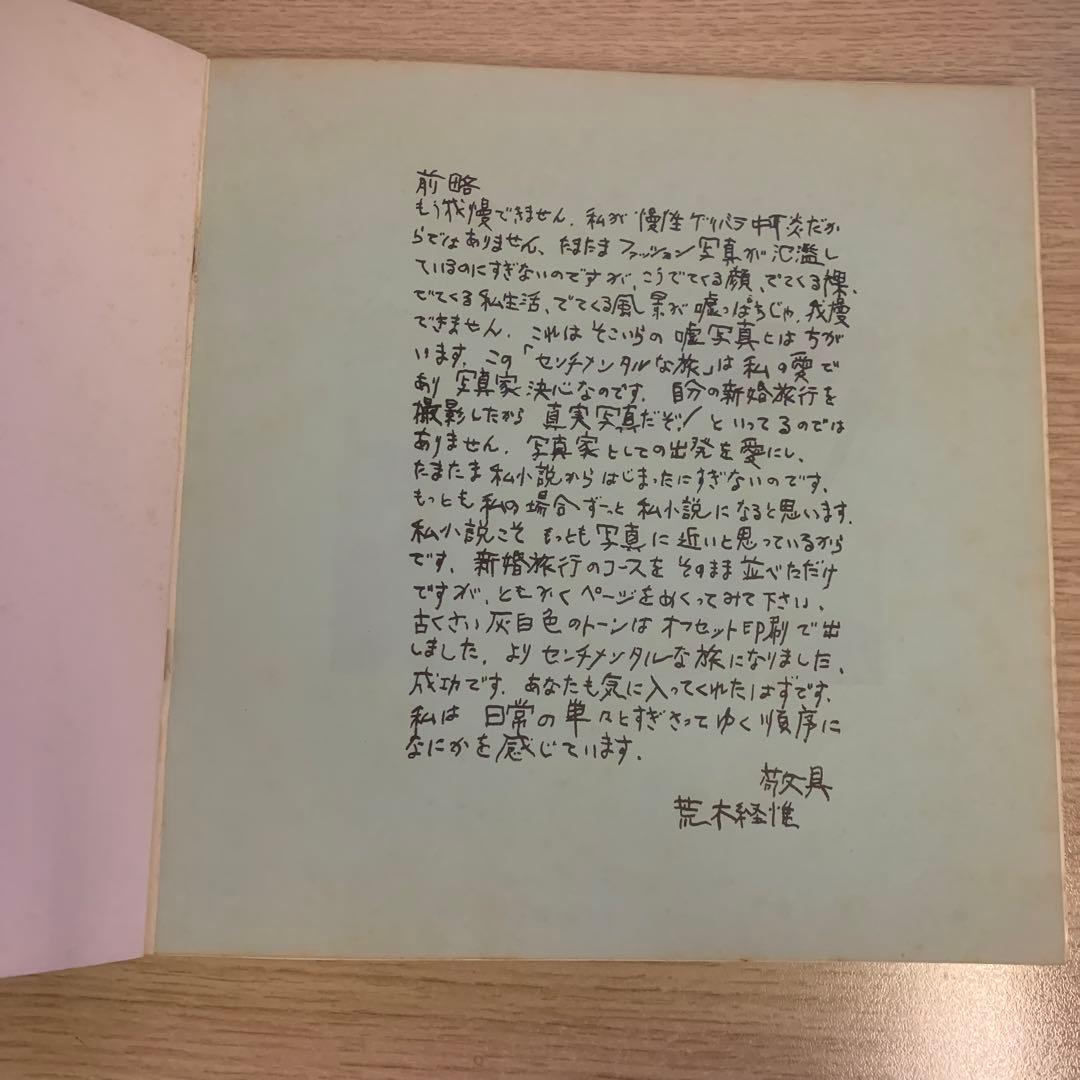 前略
もう我慢できません. 私が慢性ゲリバラ中耳炎だか
らではありません、たまたまファッション写真が氾濫し
ているのにすぎないのですが、こうでてくる顔、でてくる裸、
でてくる私生活、でてくる風景が嘘っぱちじゃ, 我慢
できません. これはそこいらの嘘写真とはちが
います. この「センチメンタルな旅」は私の愛で
あり写真家決心なのです. 自分の新婚旅行を
撮影したから真実写真だぞ!といってるのでは
ありません. 写真家としての出発を愛にし、
たまたま私小説からはじまったにすぎないのです.
もっとも私の場合ずーっと私小説になると思います.
私小説こそもっとも写真に近いと思っているから
です. 新婚旅行のコースをそのまま並べただけ
ですが、ともかくページをめくってみて下さい、
古くさい灰白色のトーンはオフセット印刷で出
しました. よりセンチメンタルな旅になりました、
成功です. あなたも気に入ってくれたはずです.
私は日常の単々とすぎさってゆく順序に
なにかを感じています.
敬具
荒木経惟